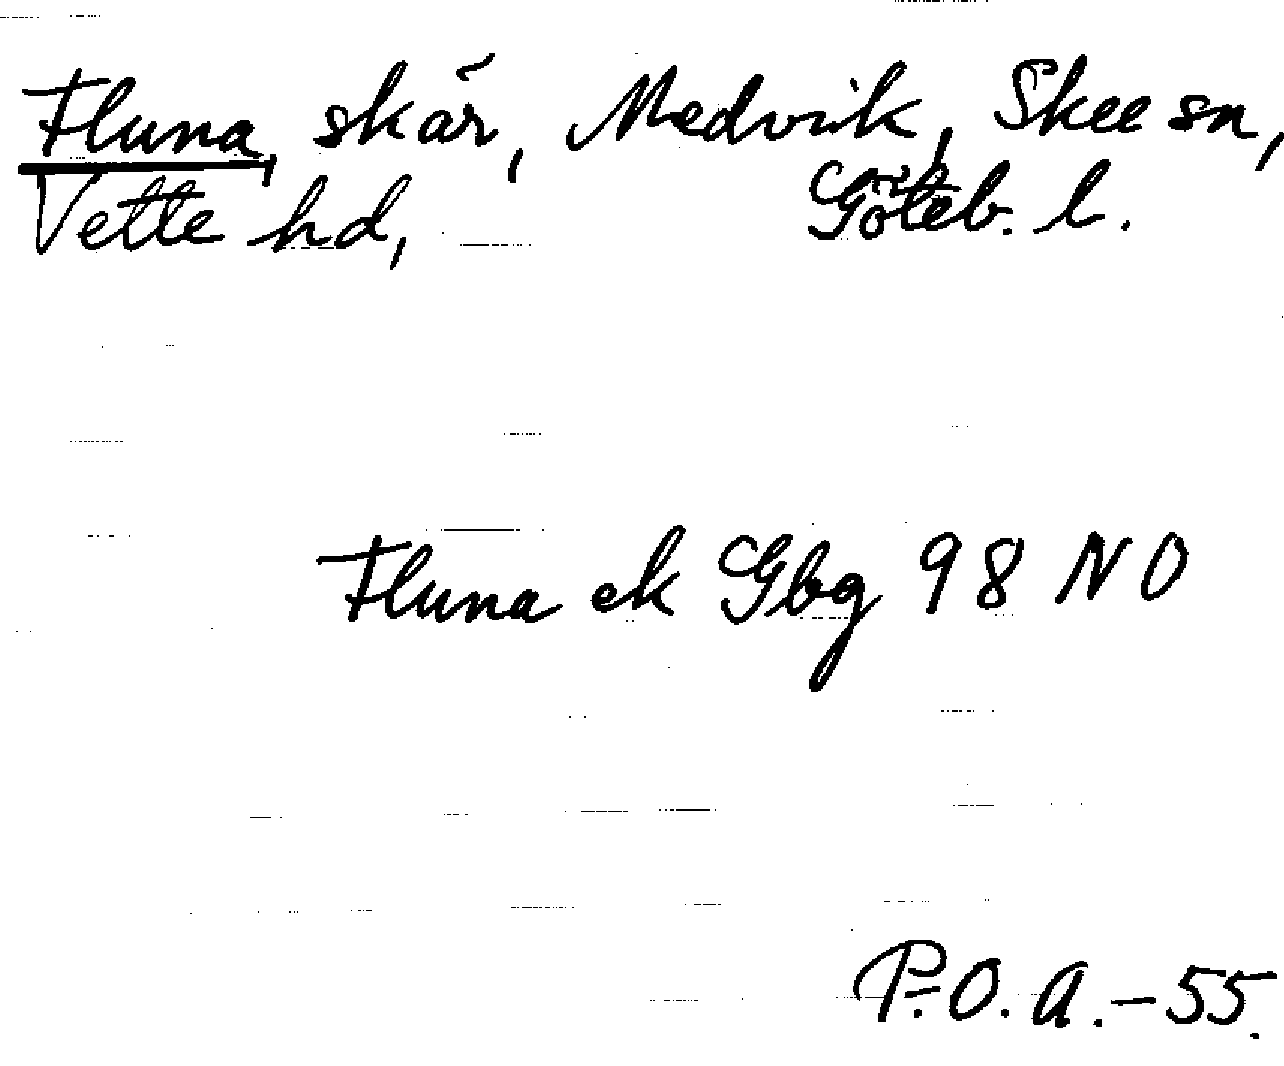 Fluna, skär, Medvik, Skee sn,
Vette hd, Göteb. l.
Fluna ek Gbg 98 NO
P.O.A.-55.